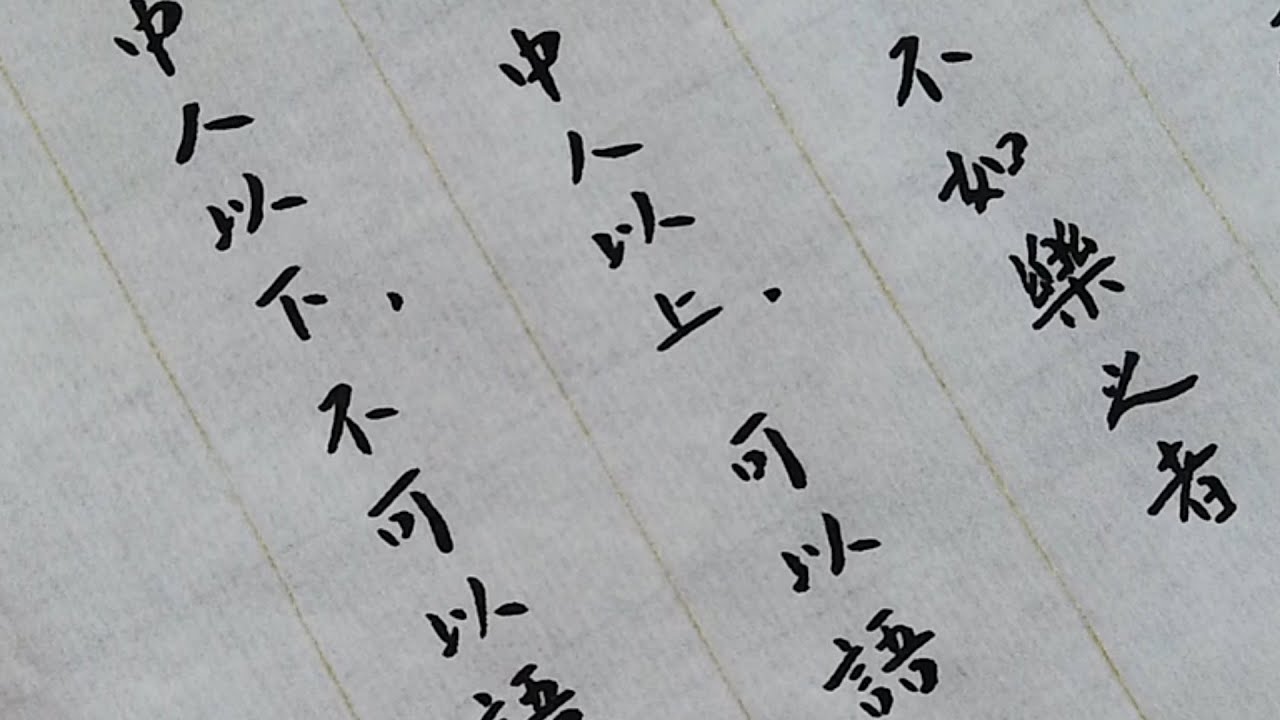 不如樂之者
中人以上，可以語
中人以下，不可以語